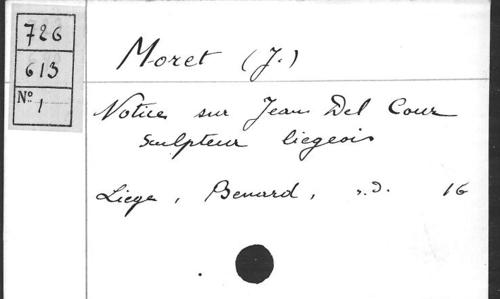 726
613
Nº 1
Moret (J.)
Notice sur Jean Del Cour
sculpteur liegeois
Liege, Benard, s.d. 16